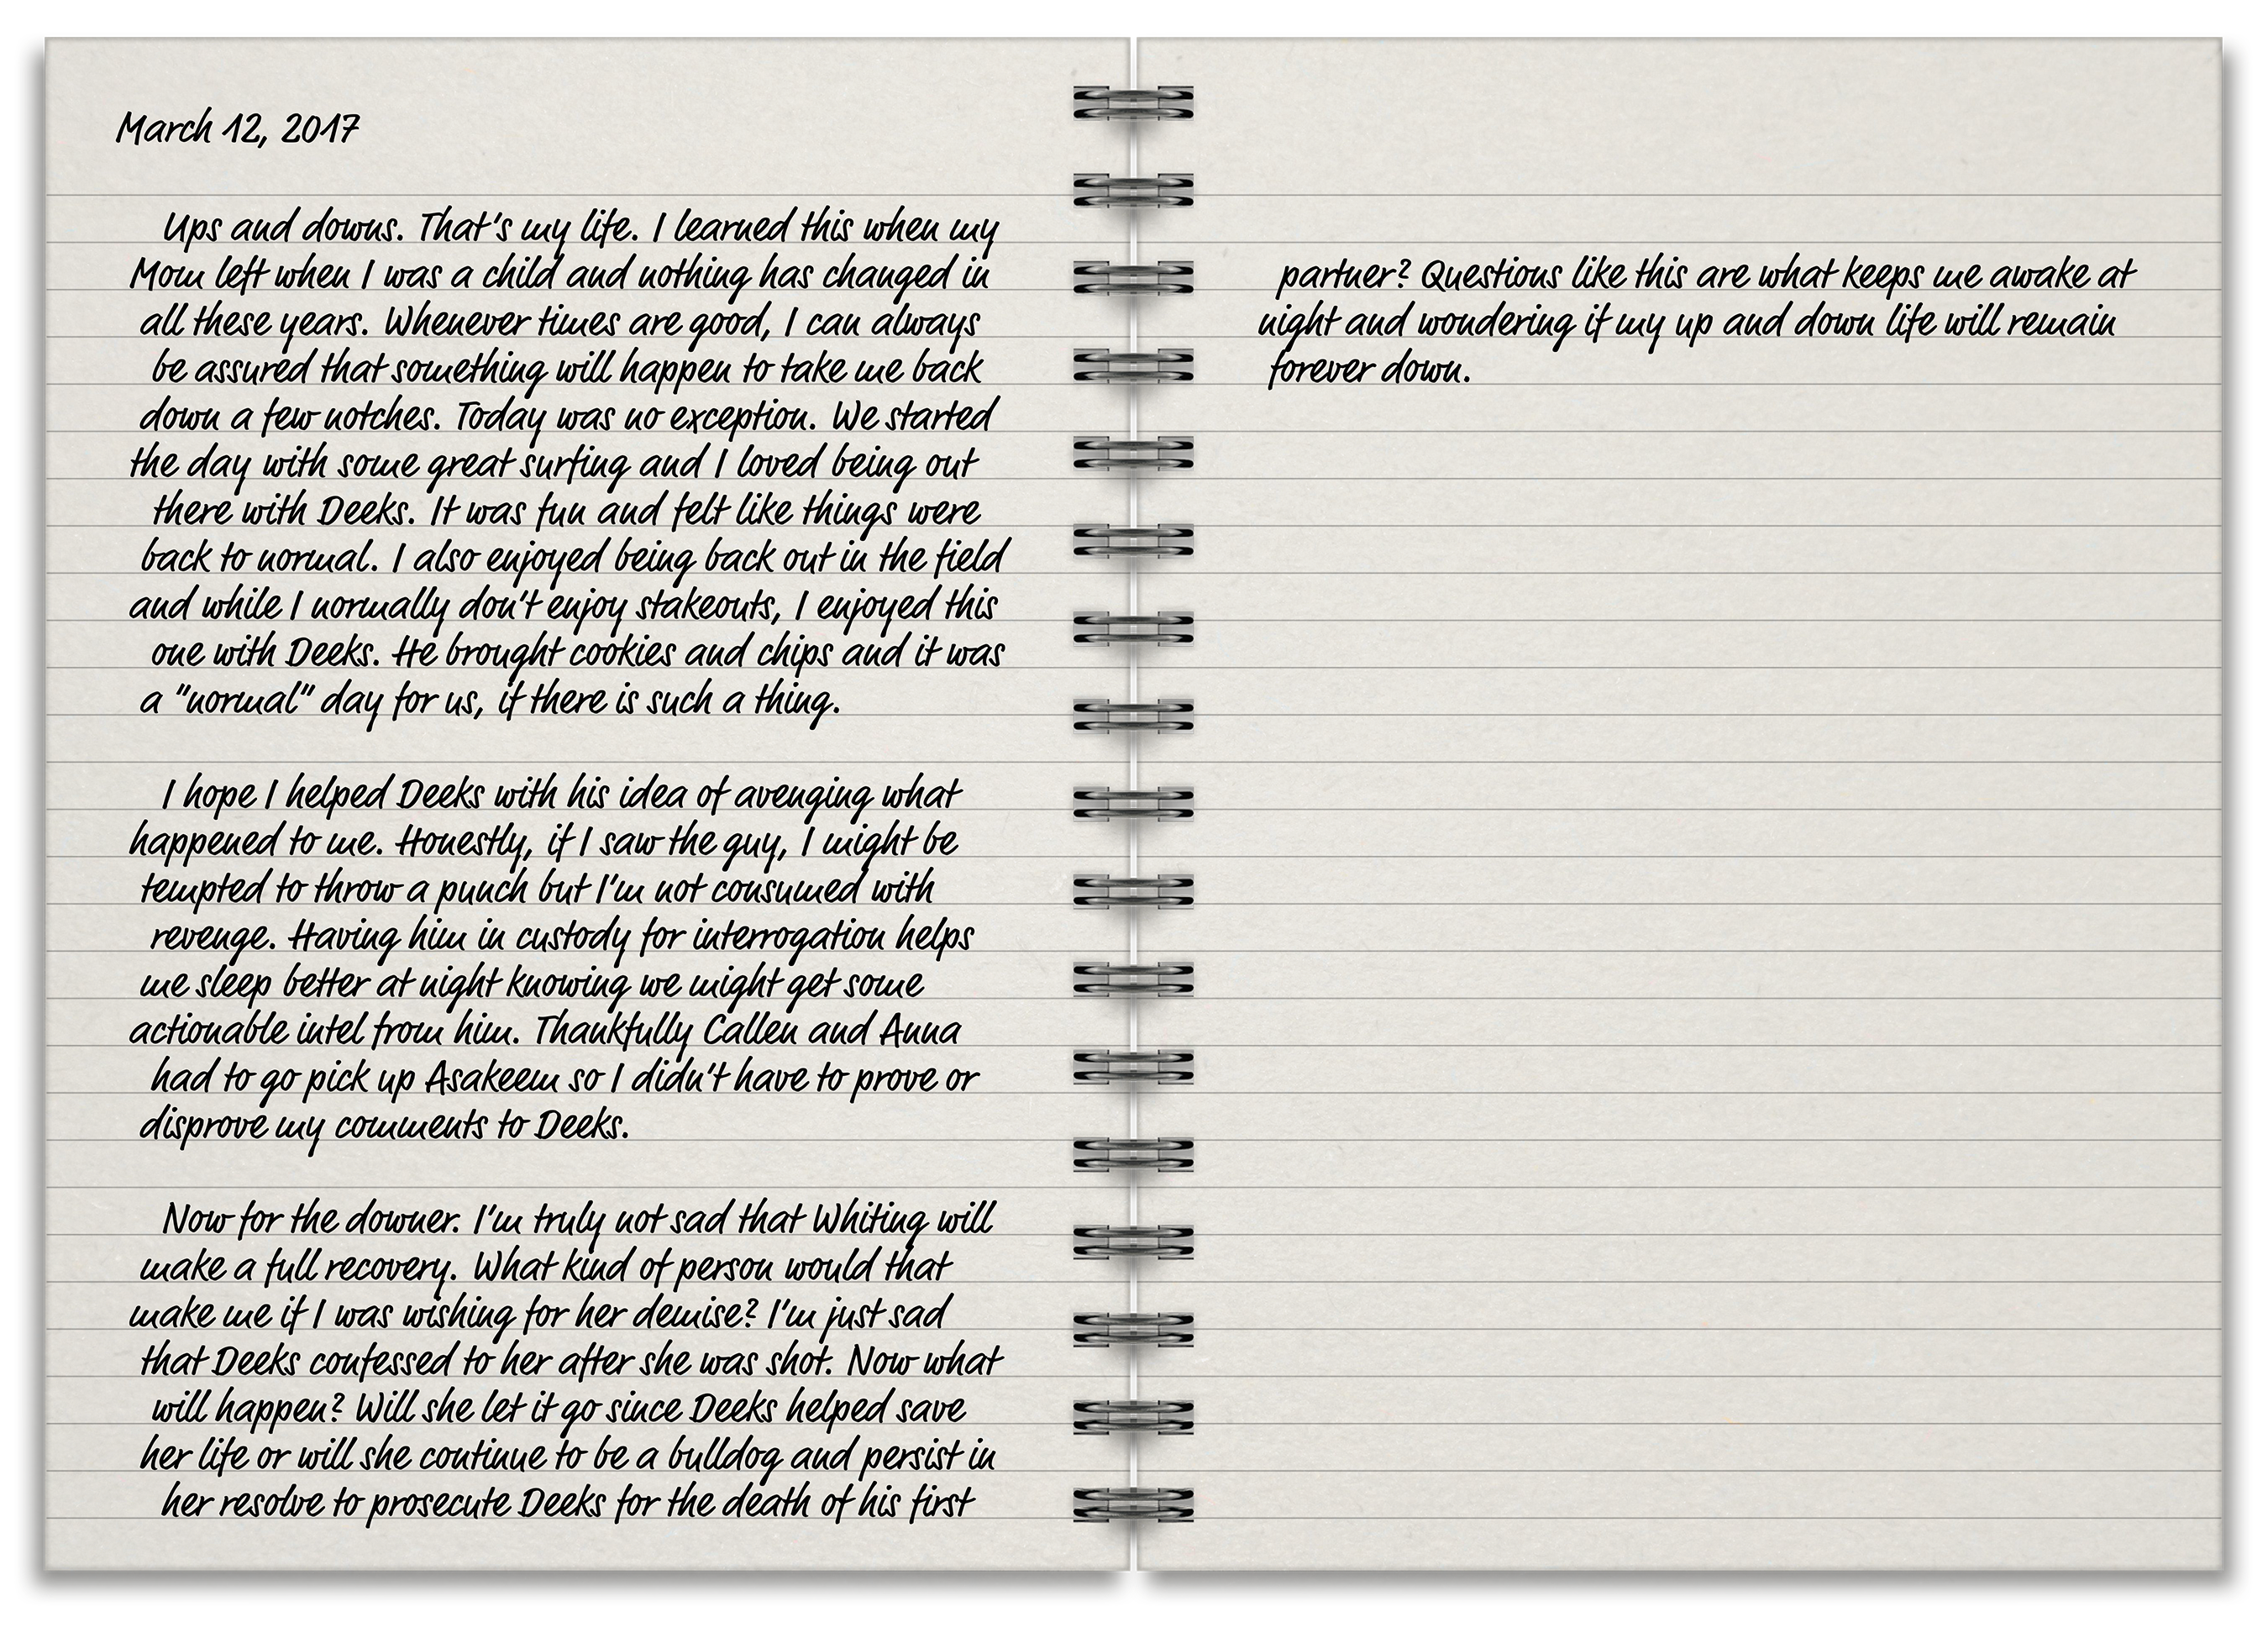 March 12, 2017
Ups and downs. That's my life. I learned this when my
Mom left when I was a child and nothing has changed in
all these years. Whenever times are good, I can always
be assured that something will happen to take me back
down a few notches. Today was no exception. We started
the day with some great surfing and I loved being out
there with Deeks. It was fun and felt like things were
back to normal. I also enjoyed being back out in the field
and while I normally don't enjoy stakeouts, I enjoyed this
one with Deeks. He brought cookies and chips and it was
a "normal" day for us, if there is such a thing.
I hope I helped Deeks with his idea of avenging what
happened to me. Honestly, if I saw the guy, I might be
tempted to throw a punch but I'm not consumed with
revenge. Having him in custody for interrogation helps
me sleep better at night knowing we might get some
actionable intel from him. Thankfully Callen and Anna
had to go pick up Asakeem so I didn't have to prove or
disprove my comments to Deeks.
Now for the downer. I'm truly not sad that Whiting will
make a full recovery. What kind of person would that
make me if I was wishing for her demise? I'm just sad
that Deeks confessed to her after she was shot. Now what
will happen? Will she let it go since Deeks helped save
her life or will she continue to be a bulldog and persist in
her resolve to prosecute Deeks for the death of his first
partner? Questions like this are what keeps me awake at
night and wondering if my up and down life will remain
forever down.